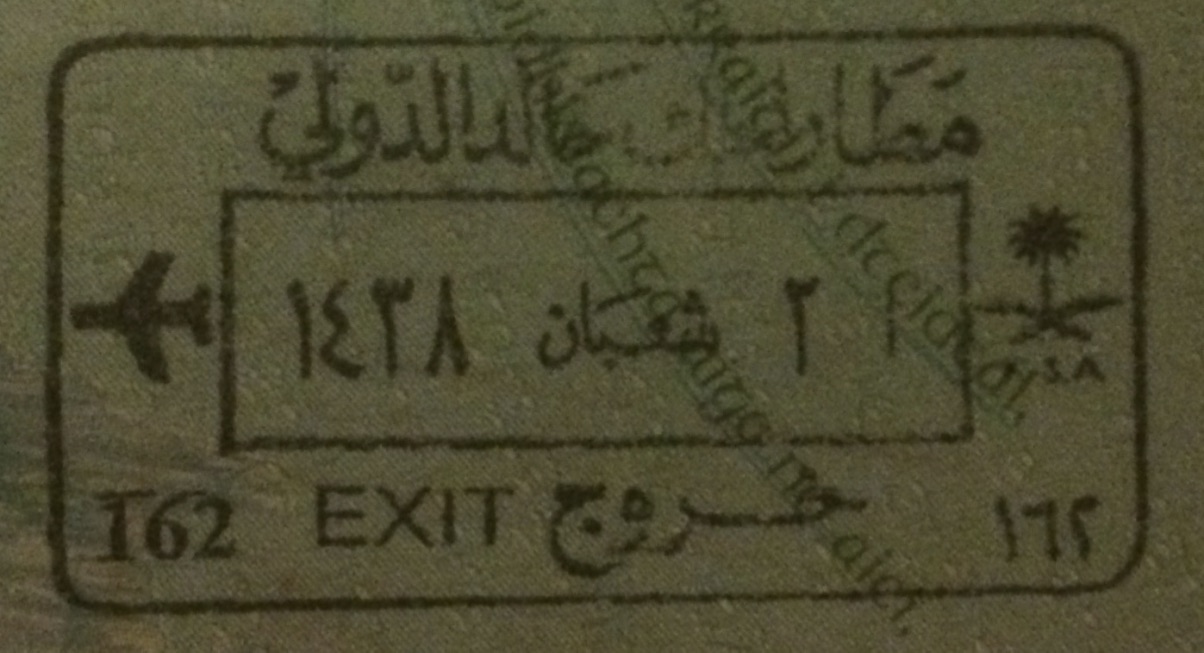 مَطَار الملك خَالد الدّوليّ
٢ شعبان ١٤٣٨
K.S.A
162 EXIT خروج ١٦٢